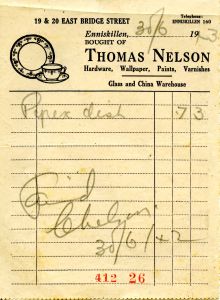 19 & 20 EAST BRIDGE STREET
Telephone:
ENNISKILLEN 160
Enniskillen, 30/6 19
BOUGHT OF
THOMAS NELSON
Hardware, Wallpaper, Paints, Varnishes
Glass and China Warehouse
dish 7 3
Paid
30/6/42
412 26